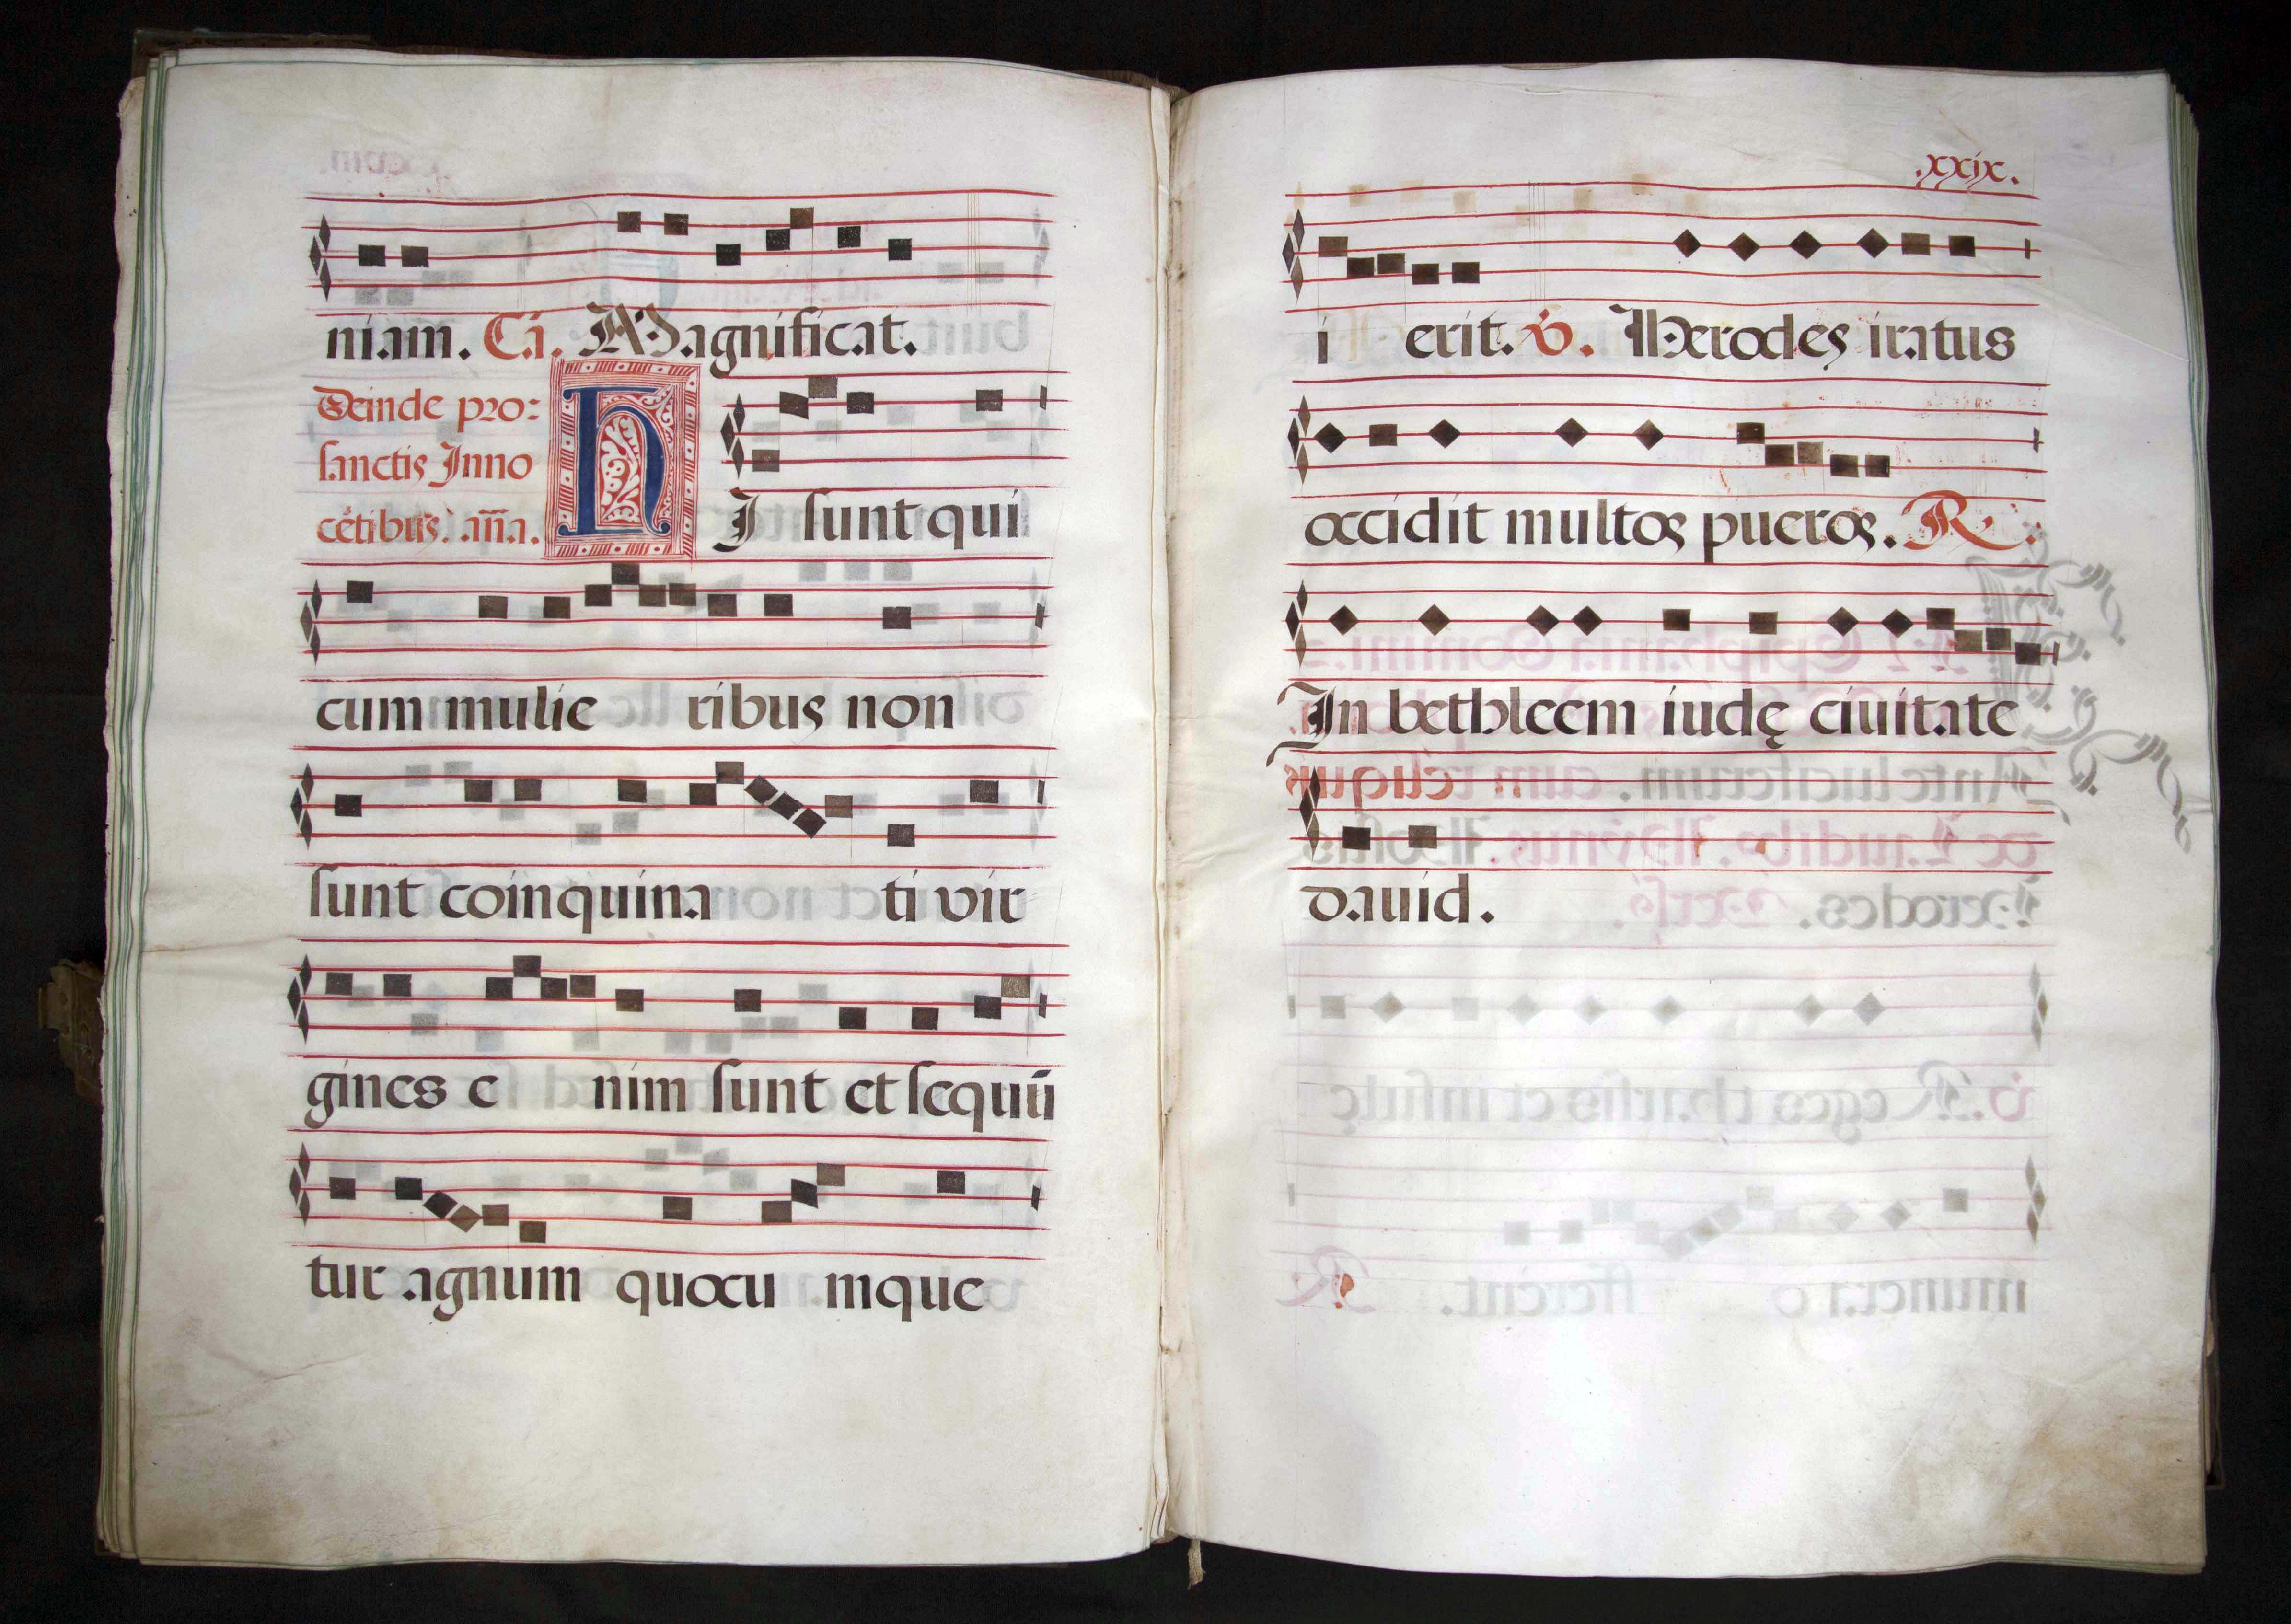 niam. Cā. Magnificat.
Deinde pro:
sanctis Inno
cētibus. aña.
HI sunt qui
cum mulie ribus non
sunt coinquina ti vir
gines e nim sunt et sequū
tur agnum quocu mque
.xxix.
i erit. ℣. Herodes iratus
occidit multos pueros. R.
In bethleem iudę ciuitate
dauid.